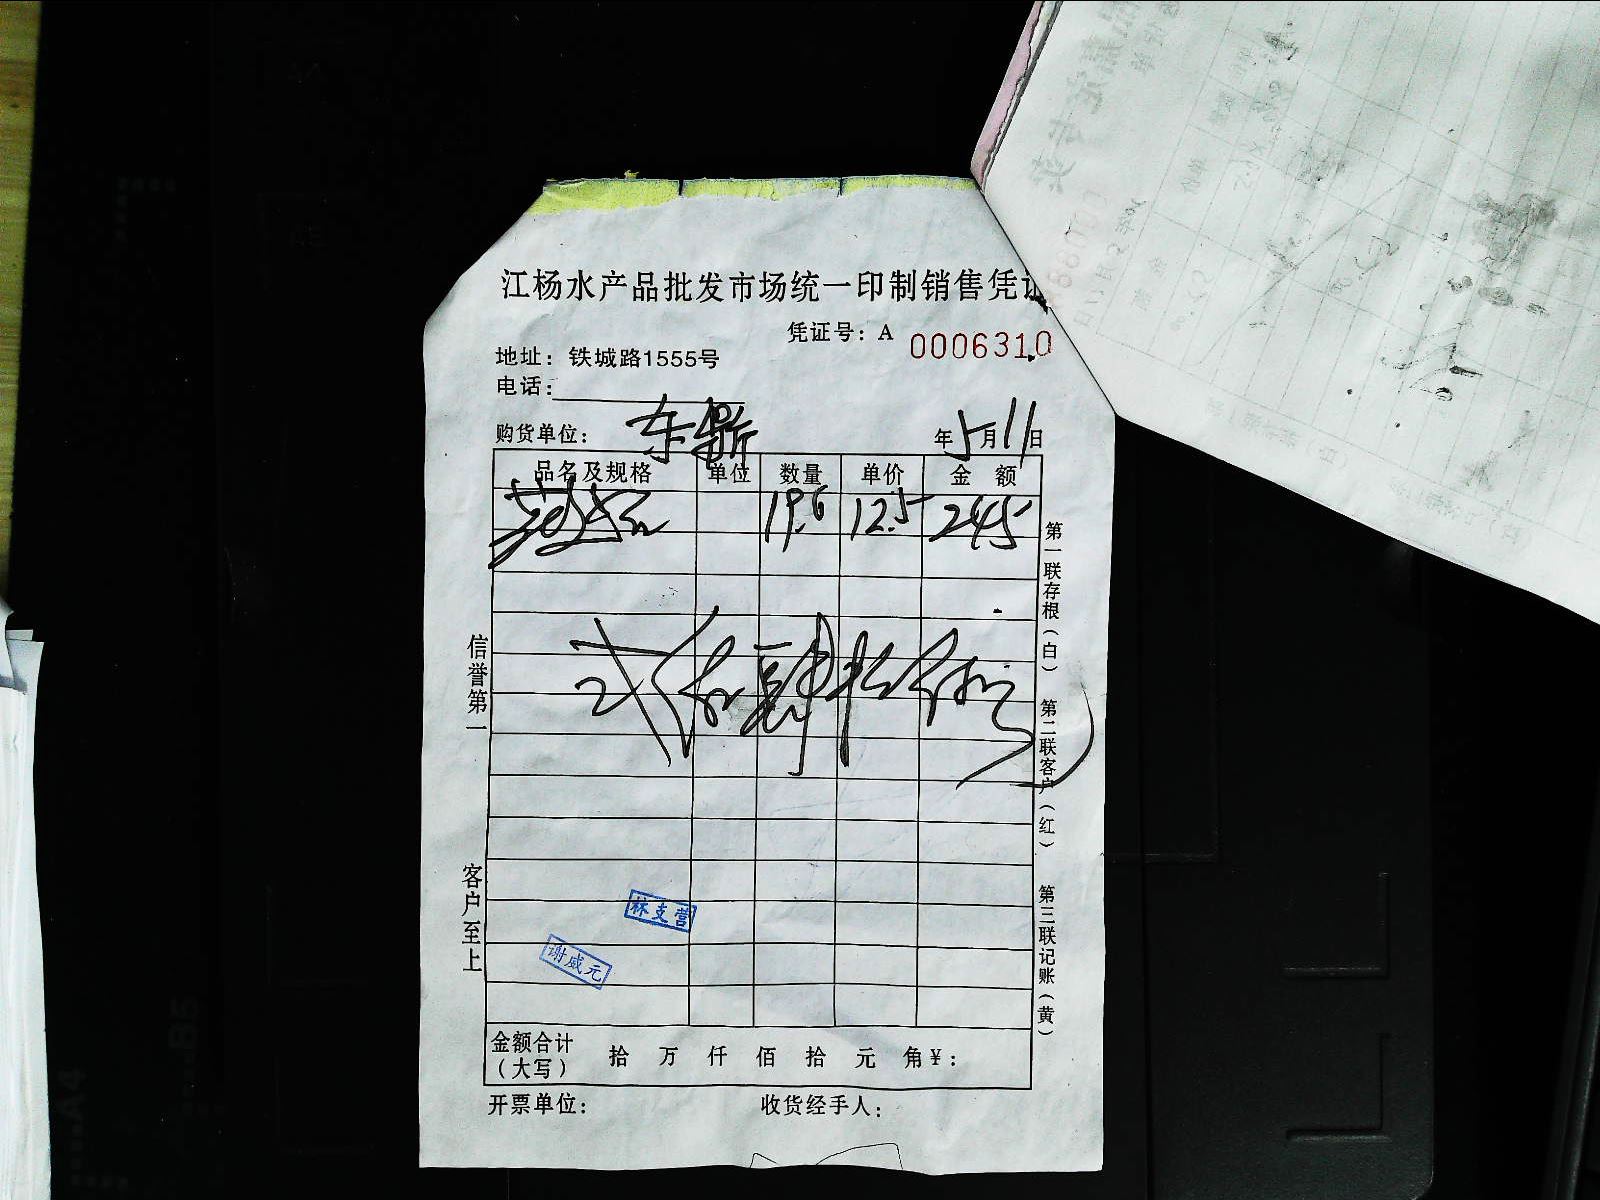 江杨水产品批发市场统一印制销售凭证
凭证号：A 0006310
地址：铁城路1555号
电话：
购货单位： 东新 年5月11日
品名及规格 单位 数量 单价 金额
19.6 12.5 245
弍佰肆拾伍元
信誉第一
客户至上
第一联存根（白）
第二联客户（红）
第三联记账（黄）
林支营
谢威元
金额合计（大写） 拾 万 仟 佰 拾 元 角 ¥：
开票单位： 收货经手人：